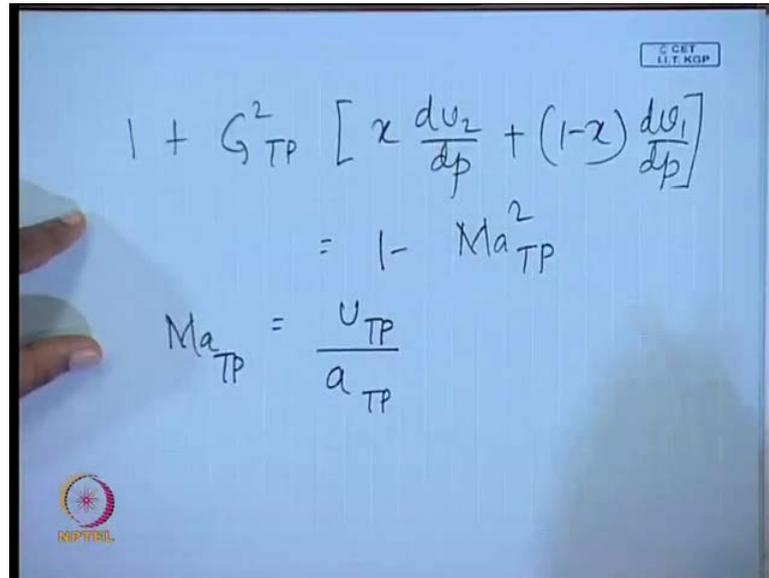 © CET
I.I.T. KGP
1 + G²_TP [ x dv₂/dp + (1-x) dv₁/dp ]
= 1 - Ma²_TP
Ma_TP = U_TP / a_TP
NPTEL